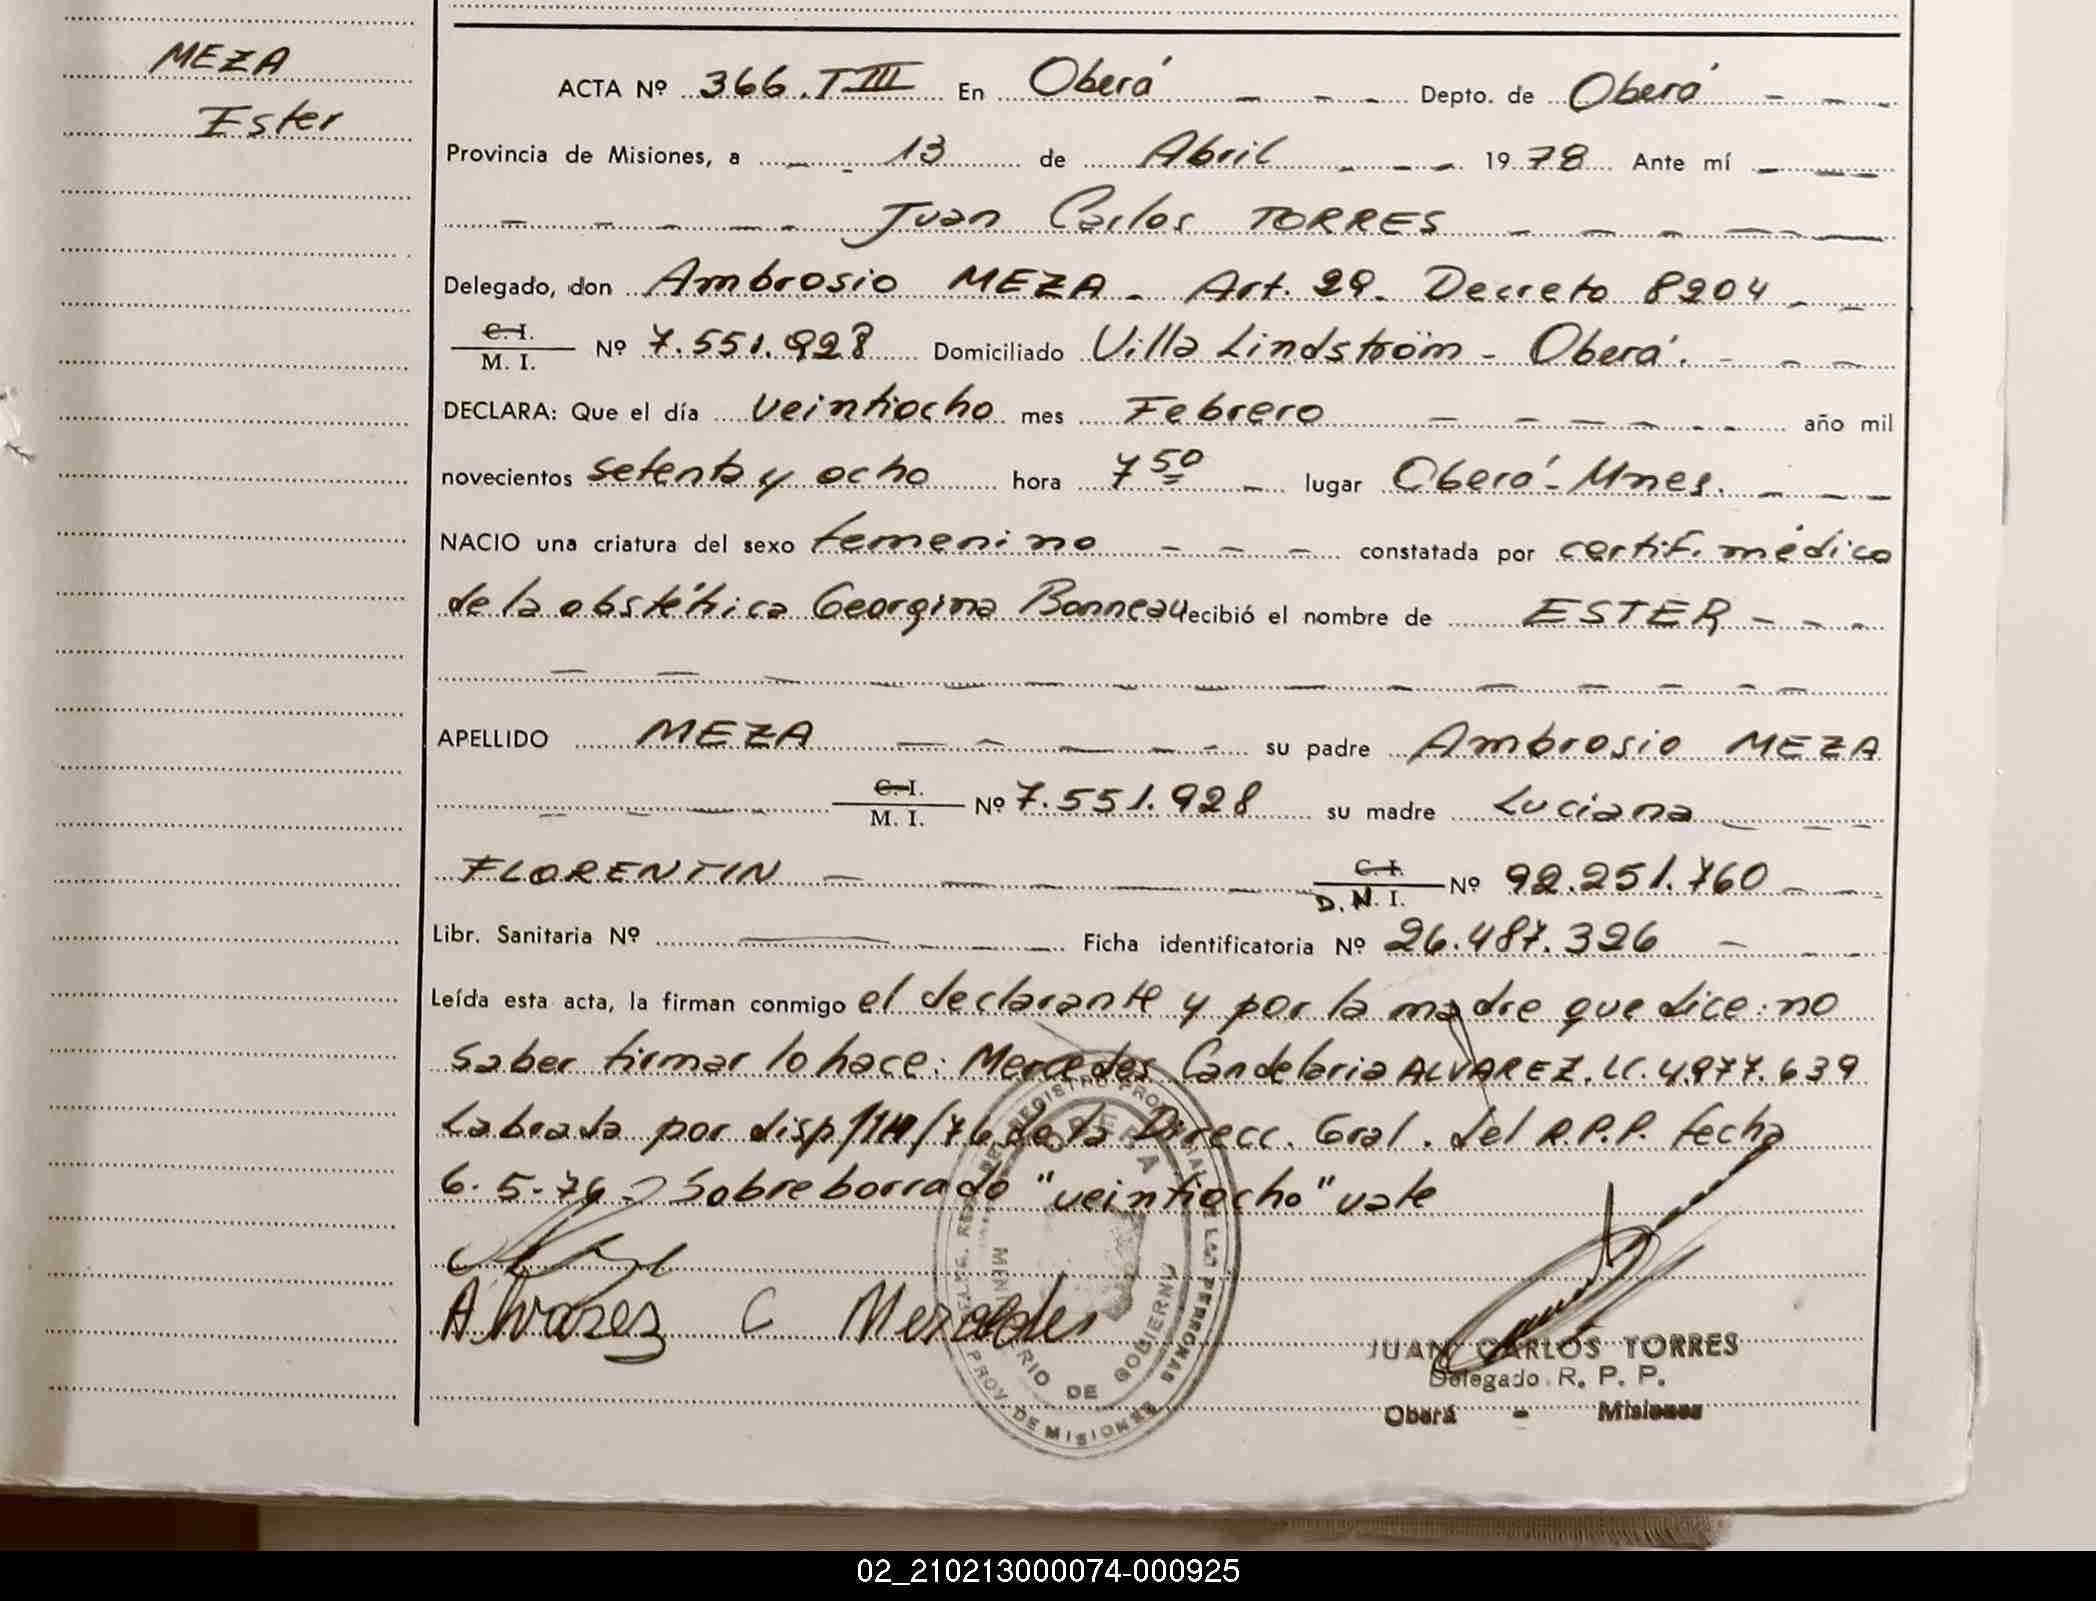 MEZA
Ester
ACTA Nº 366. T III En Oberá Depto. de Oberá
Provincia de Misiones, a 13 de Abril 1978 Ante mí
Juan Carlos TORRES
Delegado, don Ambrosio MEZA - Art. 29. Decreto 8204
C. I. / M. I. Nº 7.551.928 Domiciliado Villa Lindström - Oberá.
DECLARA: Que el día veintiocho mes Febrero año mil
novecientos setenta y ocho hora 7 50 lugar Oberá - Mnes.
NACIO una criatura del sexo femenino constatada por certif. médico
de la obstétrica Georgina Bonneau recibió el nombre de ESTER
APELLIDO MEZA su padre Ambrosio MEZA
C. I. / M. I. Nº 7.551.928 su madre Luciana
FLORENTIN C. I. / D. N. I. Nº 92.251.760
Libr. Sanitaria Nº Ficha identificatoria Nº 26.487.326
Leída esta acta, la firman conmigo el declarante y por la madre que dice: no
saber firmar lo hace: Mercedes Candelaria ALVAREZ. LC. 4.977.639
Labrada por disp de la Direcc. Gral. del R.P.P. fecha
6.5.76 - Sobreborrado "veintiocho" vale
Alvarez C Mercedes
REGISTRO PROVINCIAL DE LAS PERSONAS
MINISTERIO DE GOBIERNO
PROV. DE MISIONES
JUAN CARLOS TORRES
Delegado R. P. P.
Oberá - Misiones
02_210213000074-000925